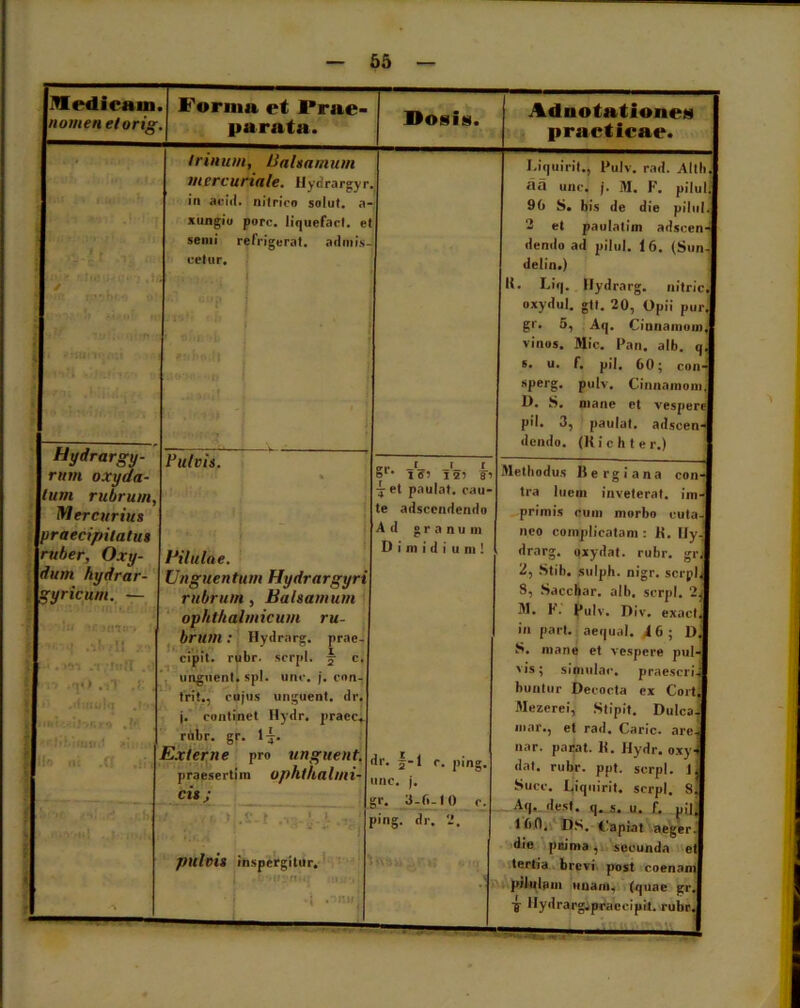 — 55 —
Medicam.
nomen et orig.
Forma et Prae-
parata.
Dosis.
Adnotationes
practicae.
trinum, Balsamum
mercuriale. Hydrargyr.
in acid. nitrico solut. a-
xungia porc. liquefact. et
semi refrigerat. admis-
cetur.
Liquirit., Pulv. rad. Alth.
āā unc. j. M. F. pilul.
96 S. bis de die pilul.
2 et paulatim adscen-
dendo ad pilul. 16. (Sun-
delin.)
R. Liq. Hydrarg. nitric.
oxydul. gtt. 20, Opii pur.
gr. 5, Aq. Cinnamom.
vinos. Mic. Pan. alb. q.
s. u. f. pil. 60; con-
sperg. pulv. Cinnamom.
D. S. mane et vespere
pil. 3, paulat. adscen-
dendo. (Richter.)
Hydrargy-
rum oxyda-
tum rubrum,
Mercurius
praecipitatus
ruber, Oxy-
dum hydrar-
gyricum. —
Pulvis.
Pilulae.
Unguentum Hydrargyri
rubrum, Balsamum
ophthalmicum ru-
brum: Hydrarg. prae-
cipit. rubr. scrpl. ½ c.
unguent. spl. unc. j. con-
trit., cujus unguent. dr.
j. continet Hydr. praec.
rubr. gr. 1¼.
Externe pro unguent.
praesertim ophthalmi-
cis;
pulvis inspergitur.
gr. 1/16, 1/12, 1/8,
¼ et paulat. cau-
te adscendendo
Ad granum
Dimidium!
dr. ½-1 c. ping.
unc. j.
gr. 3-6-10 c.
ping. dr. 2.
Methodus Bergiana con-
tra luem inveterat. im-
primis cum morbo cuta-
neo complicatam: R. Hy-
drarg. oxydat. rubr. gr.
2, Stib. sulph. nigr. scrpl.
8, Sacchar. alb. scrpl. 2.
M. F. Pulv. Div. exact.
in part. aequal. 16; D.
S. mane et vespere pul-
vis; simulac. praescri-
buntur Decocta ex Cort.
Mezerei, Stipit. Dulca-
mar., et rad. Caric. are-
nar. parat. R. Hydr. oxy-
dat. rubr. ppt. scrpl. 1.
Succ. Liquirit. scrpl. 8.
Aq. dest. q. s. u. f. pil.
160. DS. Capiat aeger.
die prima, secunda et
tertia brevi post coenam
pilulam unam, (quae gr.
⅛ Hydrarg. praecipit. rubr.